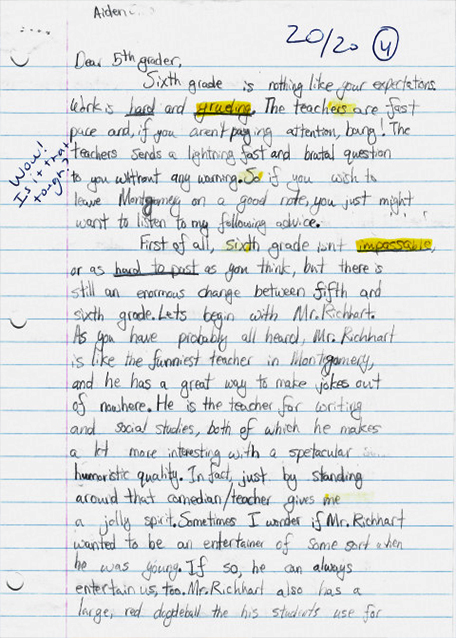 Aiden
20/20 4
Dear 5th grader,
Sixth grade is nothing like your expectations.
Work is hard and grueling. The teachers are fast
pace and, if you aren't paying attention, bang! The
teachers sends a lightning fast and brutal question
to you without any warning. So if you wish to
leave Montgomery on a good note, you just might
want to listen to my following advice.
Wow!
Is it that
tough?
First of all, sixth grade isnt impassable,
or as hard to past as you think, but there is
still an enormous change between fifth and
sixth grade. Lets begin with Mr. Richhart.
As you have probably all heard, Mr. Richhart
is like the funniest teacher in Montgomery,
and he has a great way to make jokes out
of nowhere. He is the teacher for writing
and social studies, both of which he makes
a lot more interesting with a spetacular
humoristic quality. In fact, just by standing
around that comedian/teacher gives me
a jolly spirit. Sometimes I wonder if Mr. Richhart
wanted to be an entertainer of some sort when
he was young. If so, he can always
entertain us, too. Mr. Richhart also has a
large, red dogdeball the his students use for